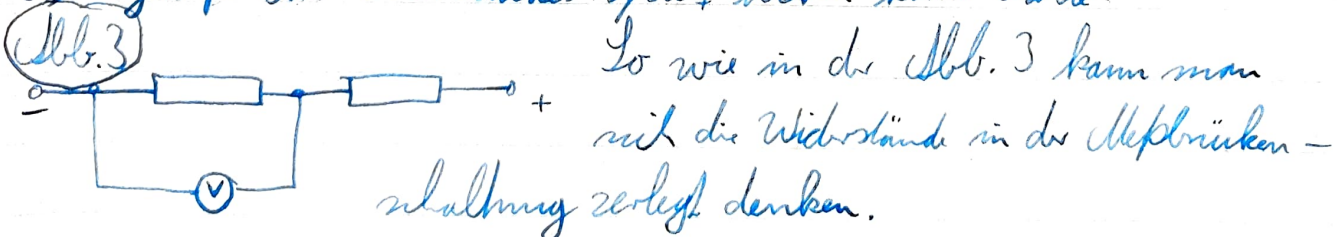 Abb. 3
So wie in der Abb. 3 kann man
− + sich die Widerstände in der Meßbrücken –
V schaltung zerlegt denken.